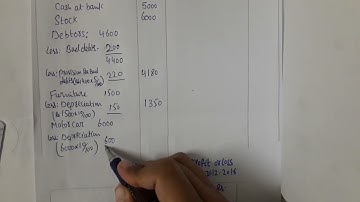 Cash at bank 5000
Stock 6000
Debtors: 4600
Less: Bad debts 200
4400
Less: provision for Bad 220 4180
debts
Furniture 1500
Less: Depreciation 150 1350
Motor car 6000
Less: Depreciation 600
(6000 x 10/100)
Profit or Loss
Rs.